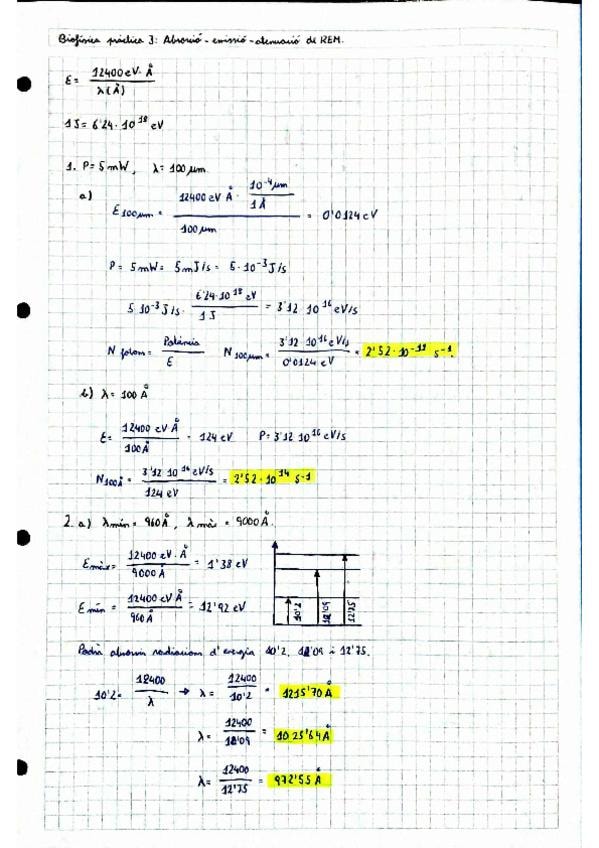 Biofísica pràctica 3: Absorció - emissió - atenuació de REM.
E = 12400 eV · Å / λ(Å)
1 J = 6'24 · 10^18 eV
1. P = 5 mW, λ = 100 μm.
a) E100μm = 12400 eV Å · 10^-4 μm / 1 Å / 100 μm = 0'0124 eV
P = 5 mW = 5 mJ/s = 5 · 10^-3 J/s
5 10^-3 J/s · 6'24 · 10^18 eV / 1 J = 3'12 · 10^16 eV/s
N fotons = Potència / E N100μm = 3'12 10^16 eV/s / 0'0124 eV = 2'52 · 10^-18 s^-1.
b) λ = 100 Å
E = 12400 eV Å / 100 Å = 124 eV P = 3'12 10^16 eV/s
N100Å = 3'12 10^16 eV/s / 124 eV = 2'52 · 10^14 s^-1
2. a) λ mín = 960 Å, λ màx = 9000 Å.
E màx = 12400 eV · Å / 9000 Å = 1'38 eV
E mín = 12400 eV Å / 960 Å = 12'92 eV
10'2 12'09 12'75
Podrà absorvir radiacions d'energia 10'2, 12'09 i 12'75.
10'2 = 12400 / λ → λ = 12400 / 10'2 = 1215'70 Å
λ = 12400 / 12'09 = 1025'64 Å
λ = 12400 / 12'75 = 972'55 Å